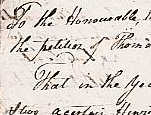 To the Honourable
the petition of Thomas
That in the Year
a certain Henri